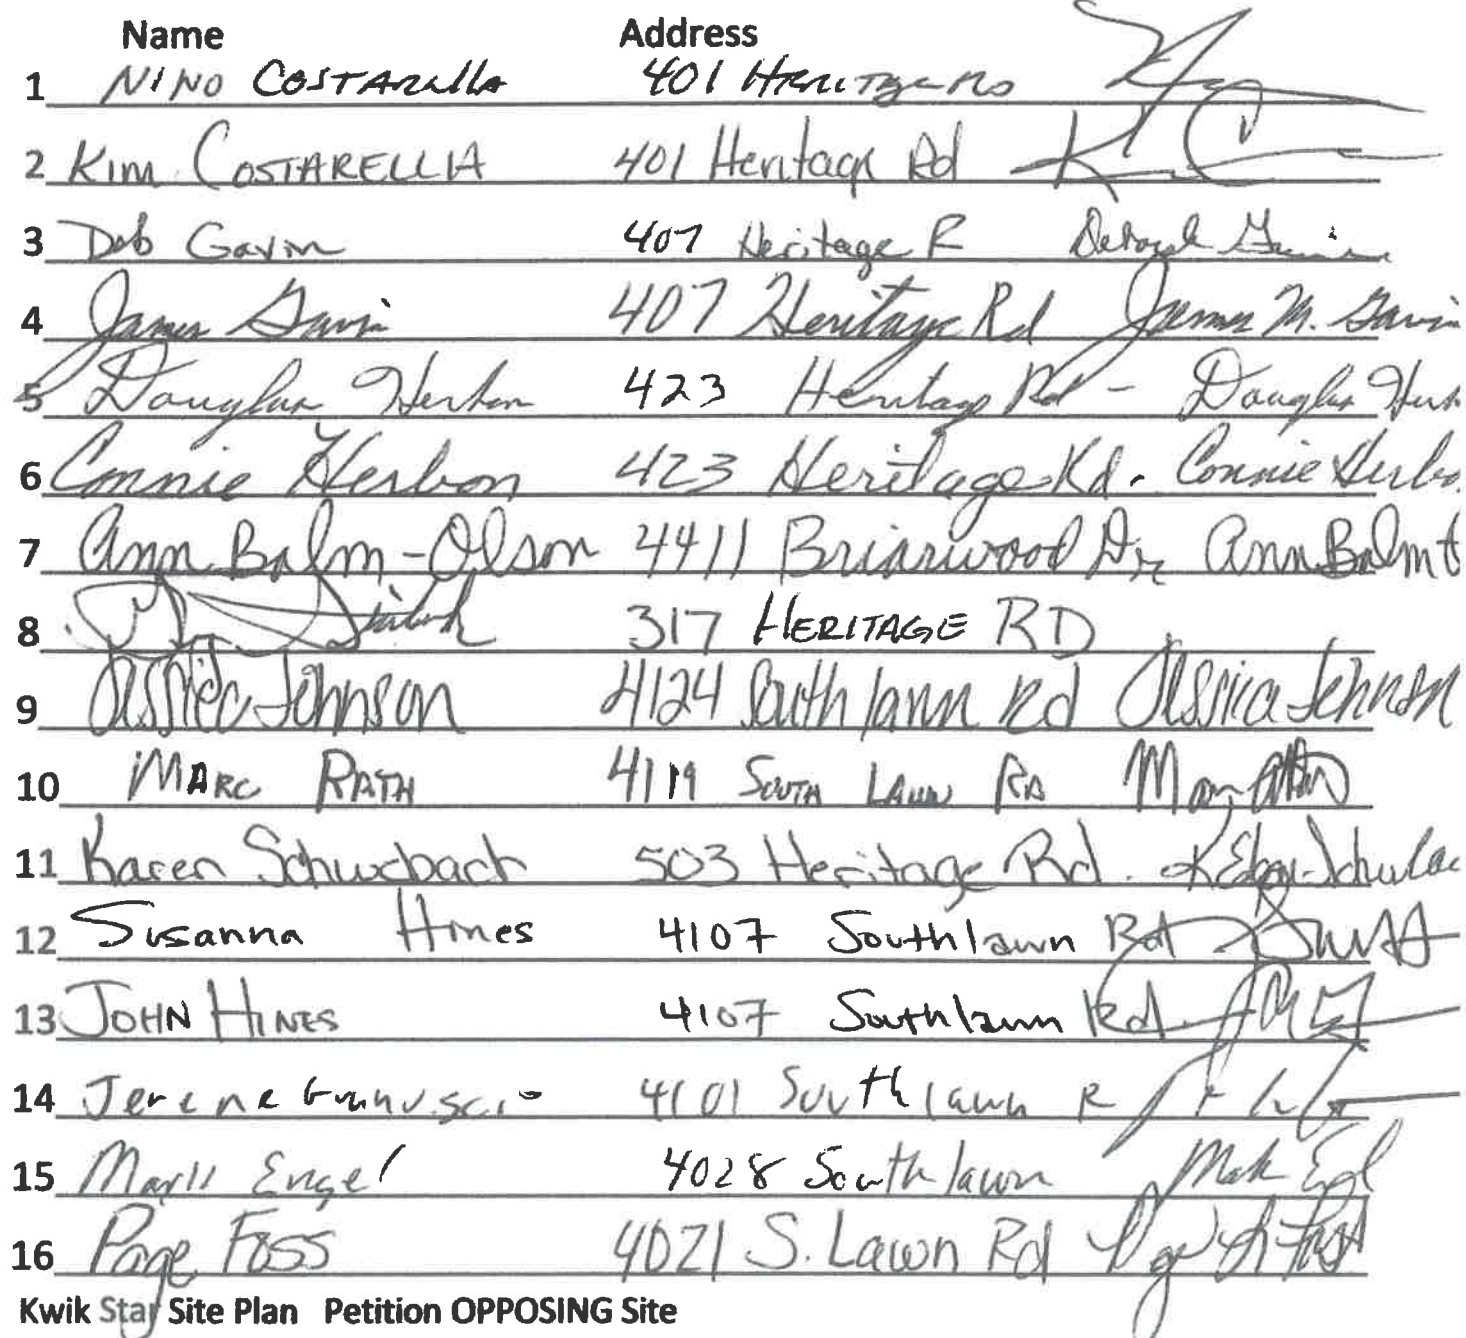 Name Address
1 NINO COSTARELLA 401 HERITAGE RD
2 KIM COSTARELLIA 401 Heritage Rd
3 Deb Gavin 407 Heritage R Deborah Gavin
4 James Gavin 407 Heritage Rd James M. Gavin
5 Douglas Herbon 423 Heritage Rd - Douglas Herb
6 Connie Herbon 423 Heritage Rd. Connie Herbo
7 Ann Balm-Olson 4411 Briarwood Dr Ann Balm O
8 317 HERITAGE RD
9 Jessica Johnson 4124 South lawn Rd Jessica Johnson
10 MARC RATH 4119 SOUTH LAWN RD
11 Karen Schwabach 503 Heritage Rd.
12 Susanna Hines 4107 Southlawn Rd
13 JOHN HINES 4107 Southlawn Rd.
14 Jerene 4101 South lawn R
15 Mark Engel 4028 South lawn Mark Engel
16 Page Foss 4021 S. Lawn Rd
Kwik Star Site Plan Petition OPPOSING Site